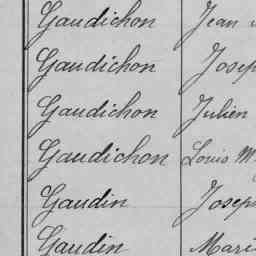 Gaudichon Jean
Gaudichon Josep
Gaudichon Julien
Gaudichon Louis M
Gaudin Josep
Gaudin Mari